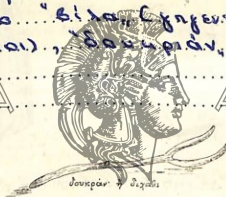 "Βίλα" (γηγεν
αι), "δουκράν"
δουκράν ἢ διχάλι